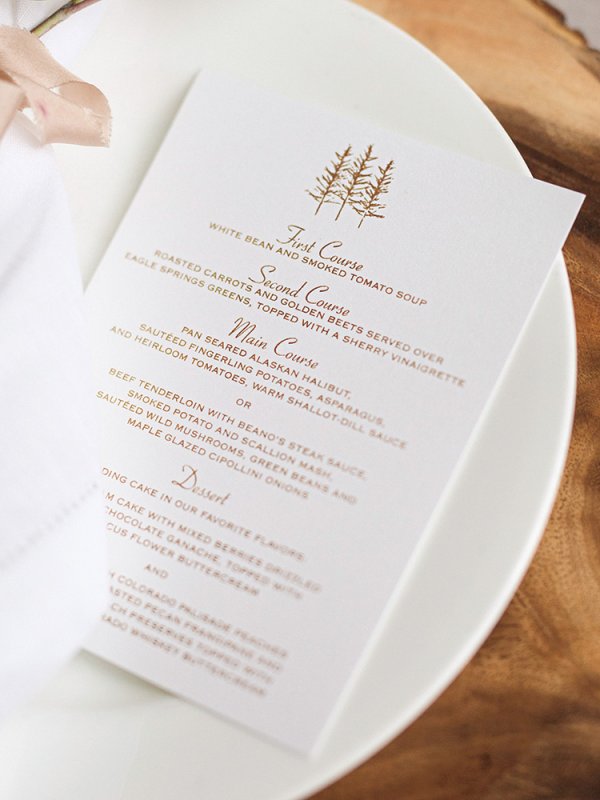 First Course
WHITE BEAN AND SMOKED TOMATO SOUP
Second Course
ROASTED CARROTS AND GOLDEN BEETS SERVED OVER
EAGLE SPRINGS GREENS, TOPPED WITH A SHERRY VINAIGRETTE
Main Course
PAN SEARED ALASKAN HALIBUT,
SAUTÉED FINGERLING POTATOES, ASPARAGUS,
AND HEIRLOOM TOMATOES, WARM SHALLOT-DILL SAUCE
OR
BEEF TENDERLOIN WITH BEANO'S STEAK SAUCE,
SMOKED POTATO AND SCALLION MASH,
SAUTÉED WILD MUSHROOMS, GREEN BEANS AND
MAPLE GLAZED CIPOLLINI ONIONS
Dessert
CAKE IN OUR FAVORITE FLAVORS,
CAKE WITH MIXED BERRIES DRIZZLED
CHOCOLATE GANACHE, TOPPED WITH
FLOWER BUTTERCREAM
AND
COLORADO PALISADE PEACHES
PECAN FRANGIPANE AND
PRESERVES TOPPED WITH
WHISKEY BUTTERCREAM